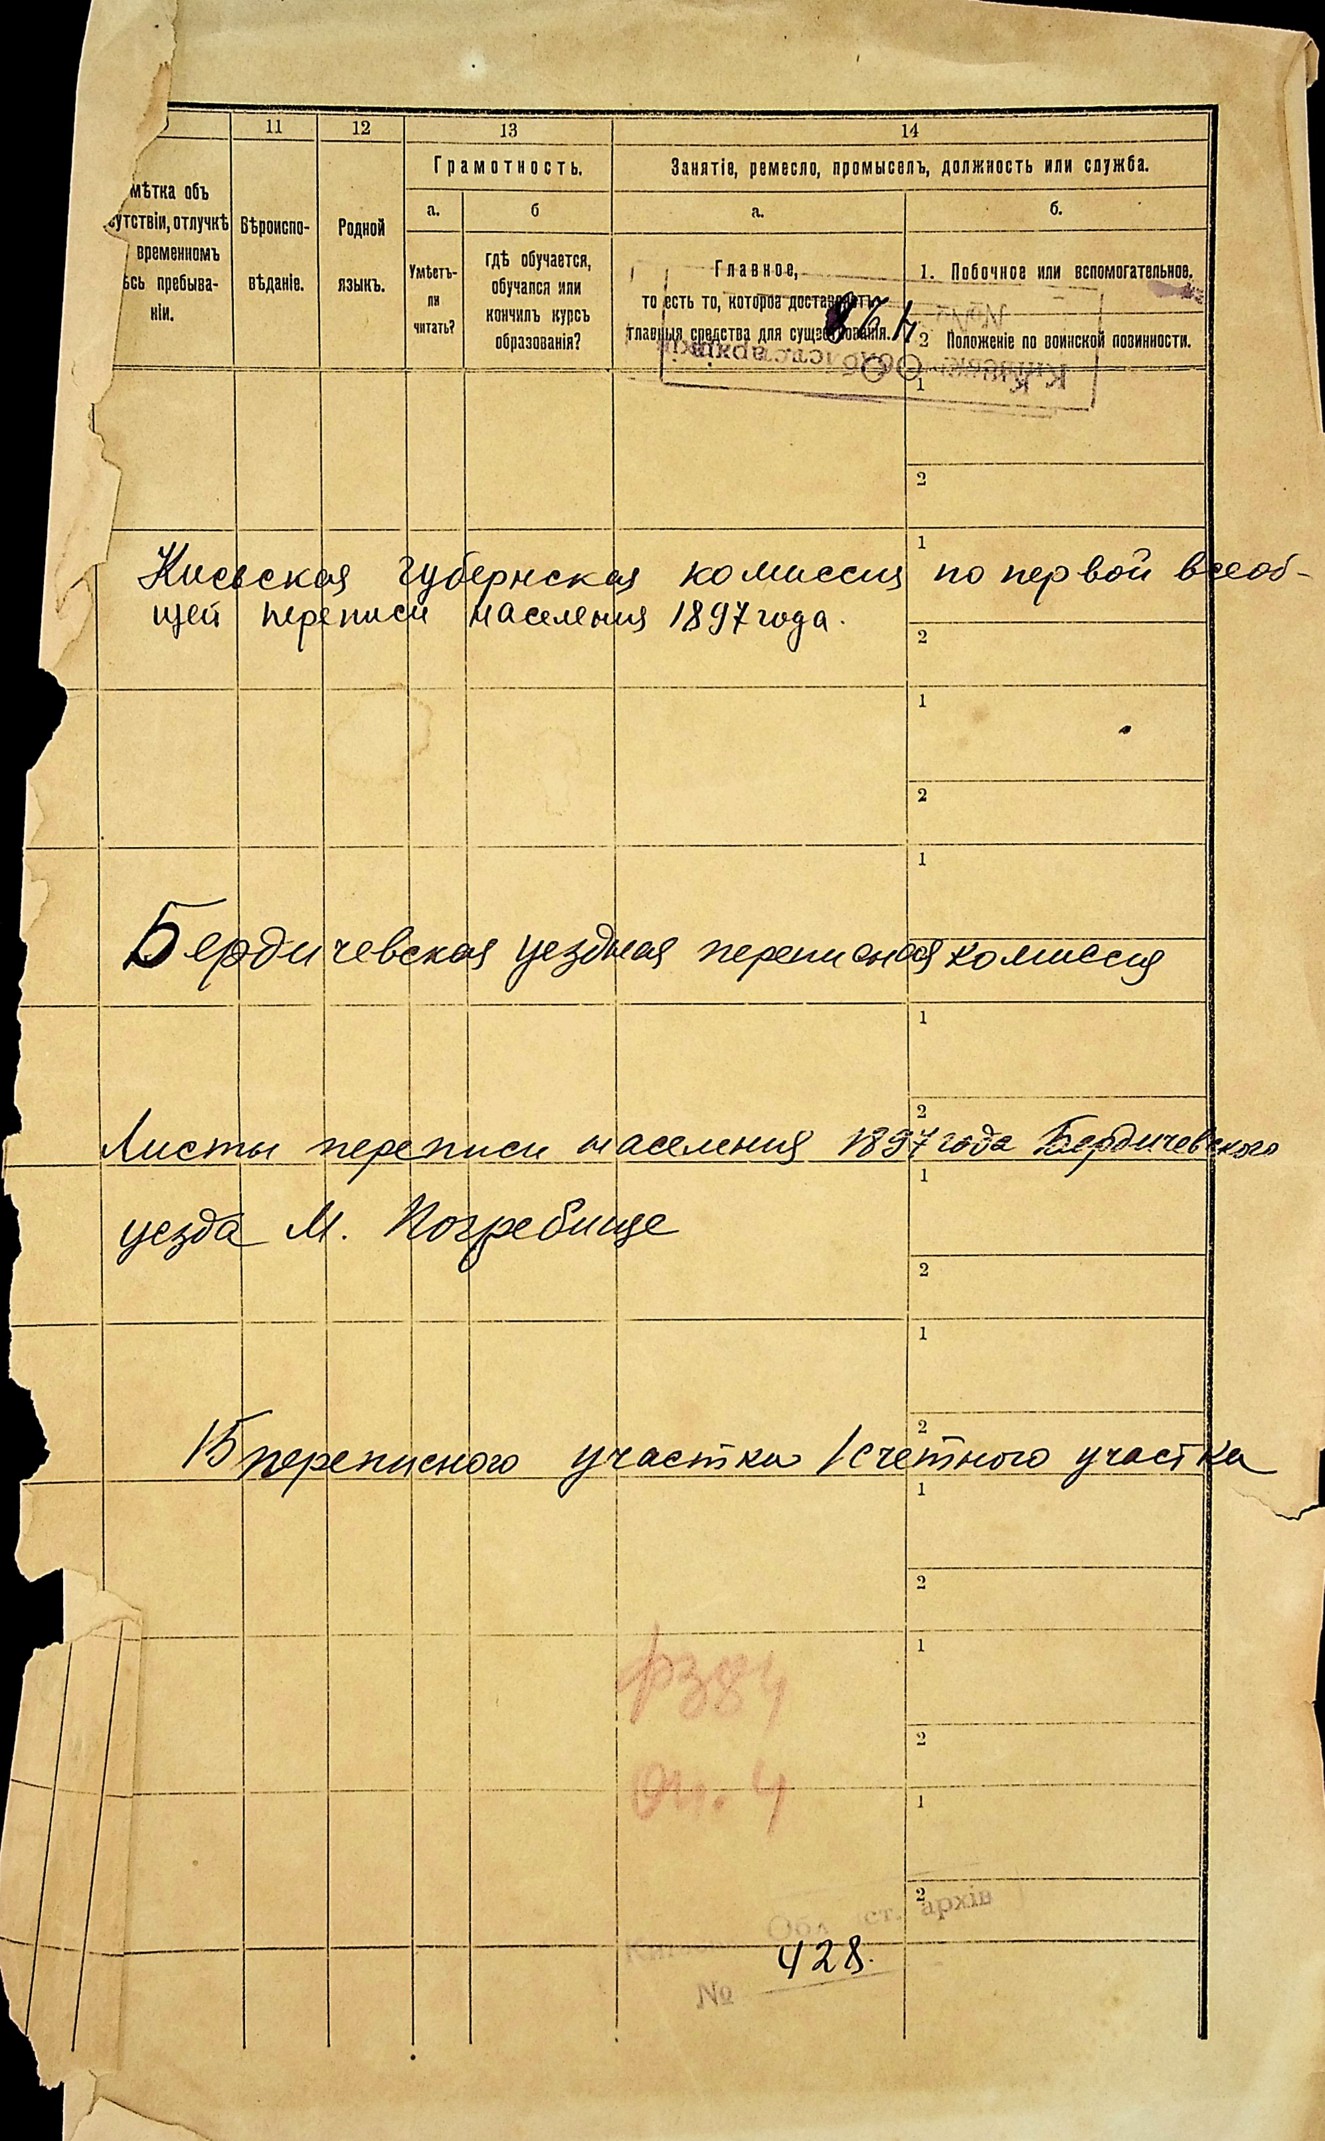 11 12 13 14
Грамотность.
Занятіе, ремесло, промыселъ, должность или служба.
мѣтка объ
сутствіи, отлучкѣ
временномъ
сь пребыва-
ніи.
Вѣроиспо-
вѣданіе.
Родной
языкъ.
а.
Умѣетъ-
ли
читать?
б
гдѣ обучается,
обучался или
кончилъ курсъ
образованія?
а.
Главное,
то есть то, которое доставляетъ
главныя средства для существованія.
б.
1. Побочное или вспомогательное.
2 Положеніе по воинской повинности.
428
1
2
1
Киевская губернская комиссия по первой всеоб-
щей переписи населения 1897 года.
2
1
2
1
Бердичевская уездная переписная комиссия
1
2
Листы переписи населения 1897 года Бердичевского
1
уезда М. Погребище
2
1
2
15 переписного участка 1 счетного участка
1
2
1
р384
2
оп. 4
1
2
Обл. іст. архів
№ 428.